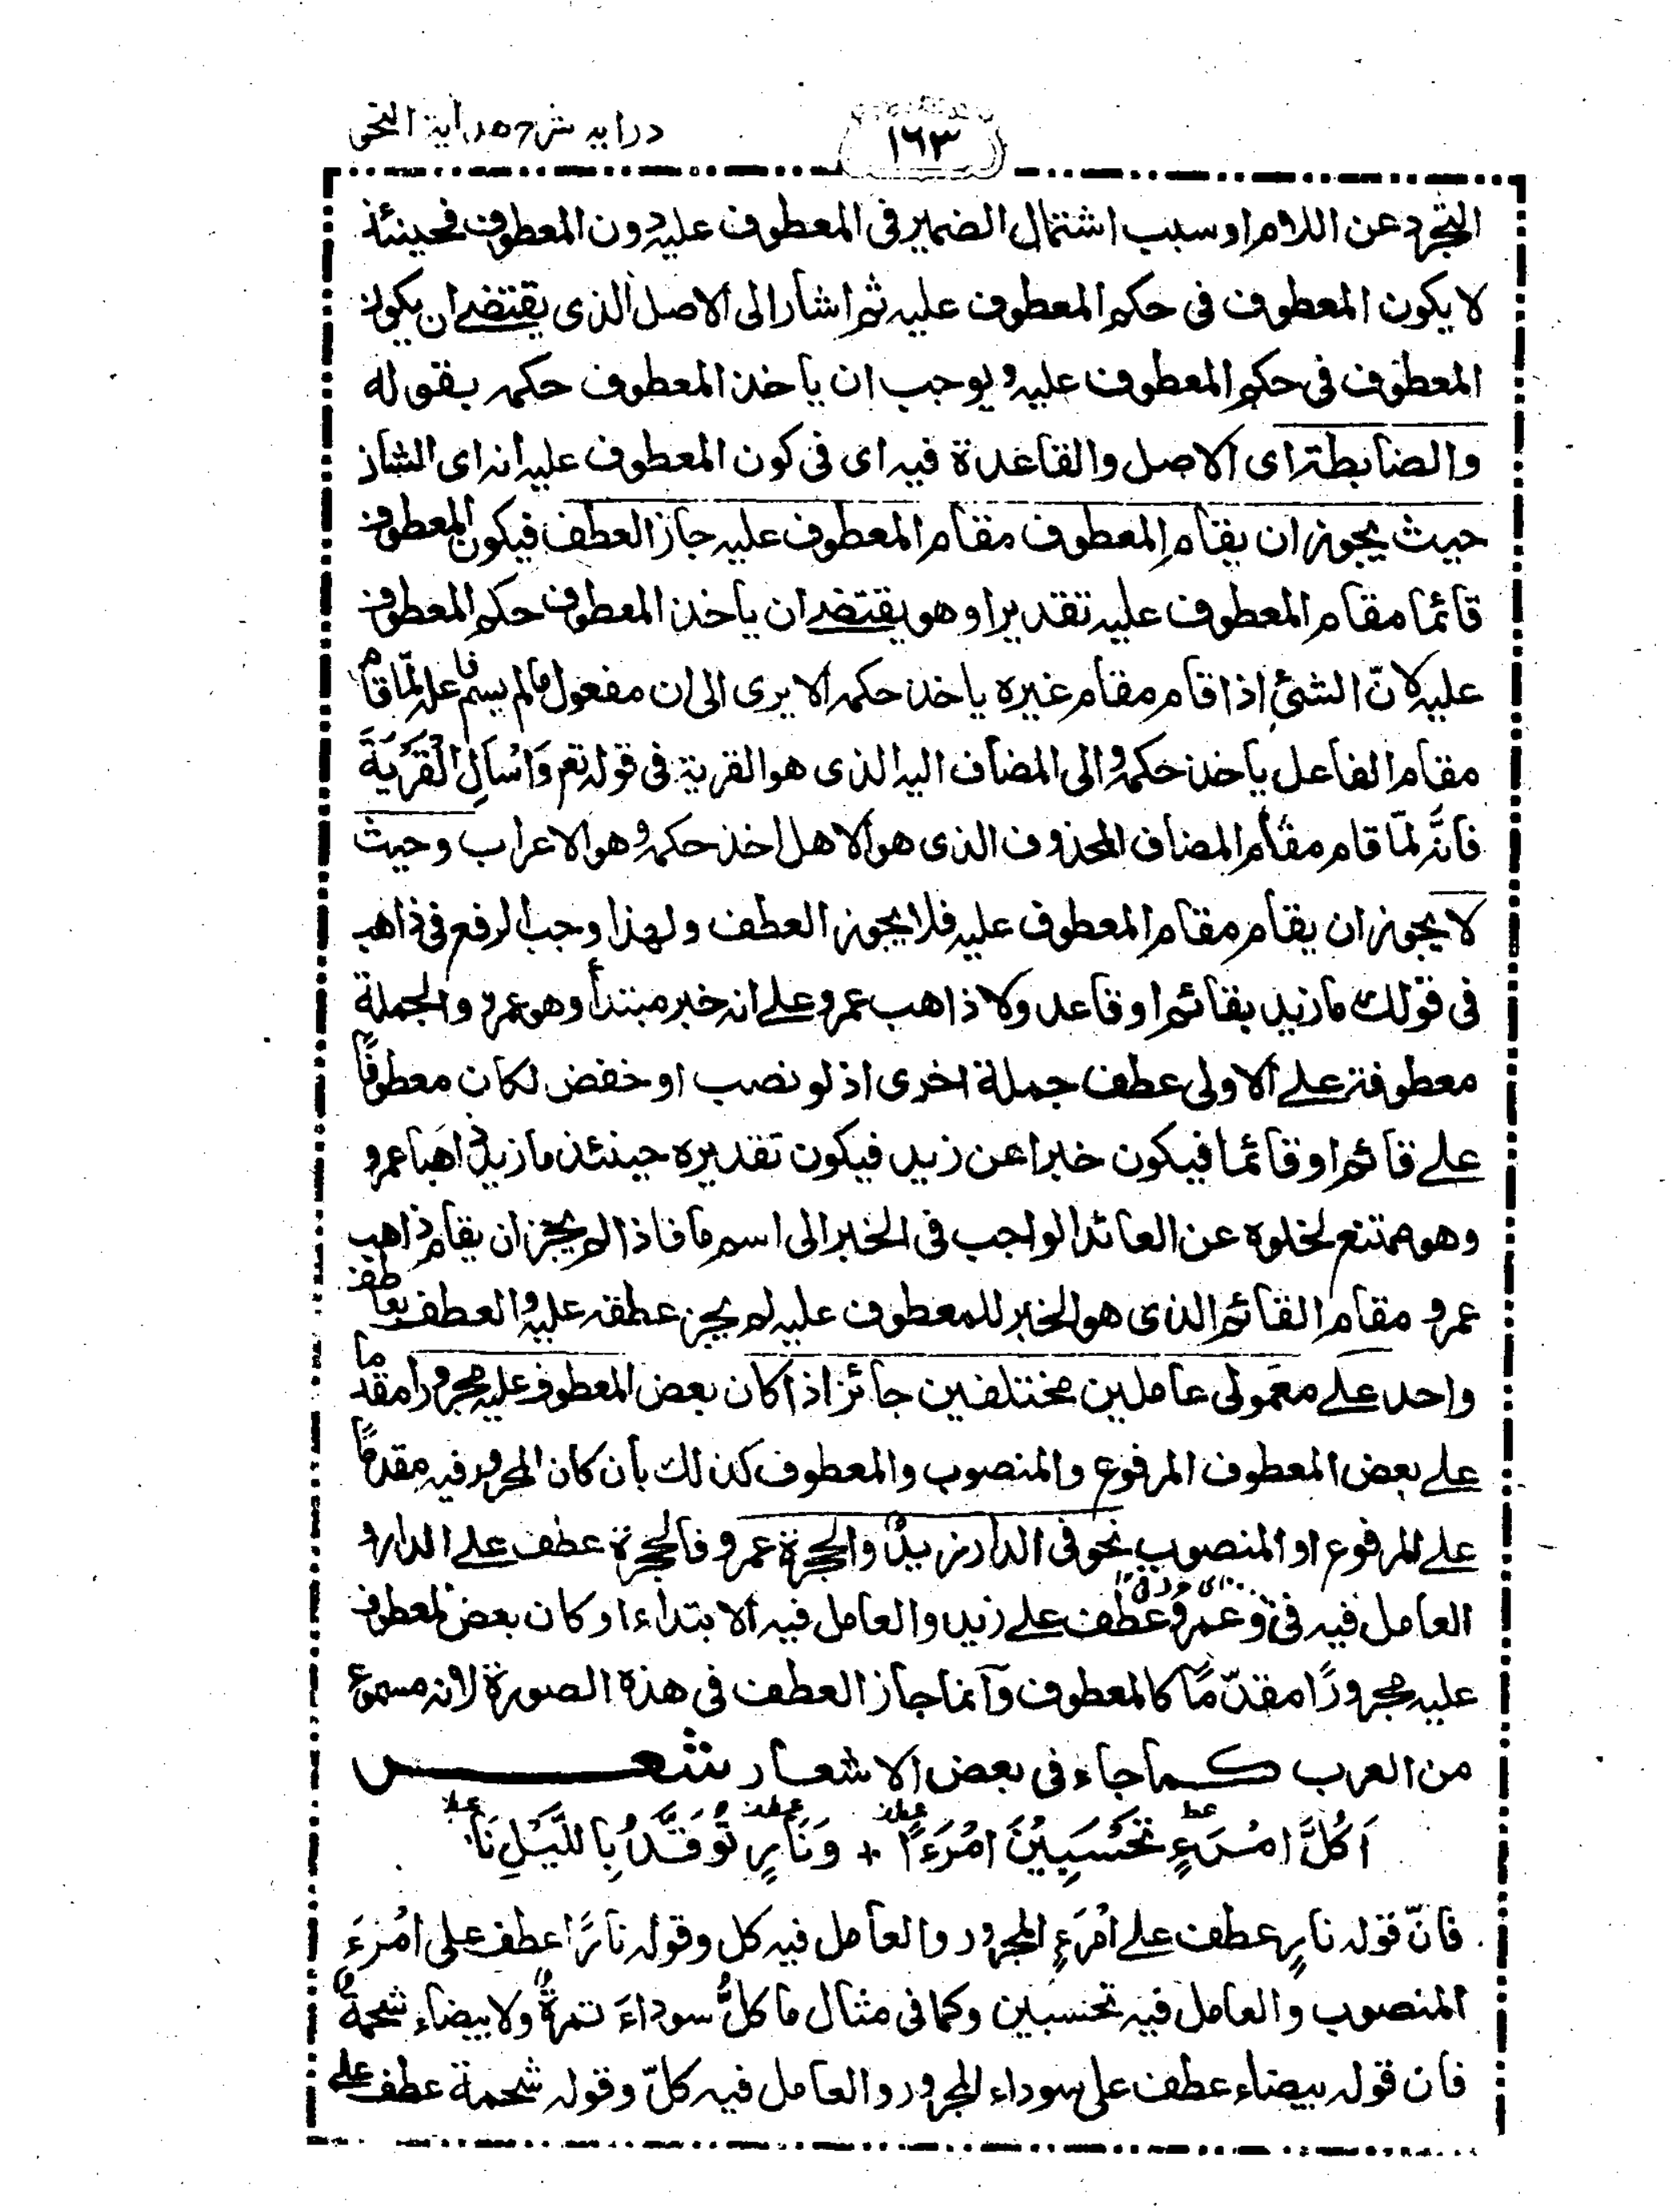 درايه شرح هداية النحو
١٦٣
التجرد عن اللام او سبب اشتمال الضمير فى المعطوف عليه دون المعطوف فحينئذ
لا يكون المعطوف فى حكم المعطوف عليه ثم اشار الى الاصل الذى يقتضے ان يكون
المعطوف فى حكم المعطوف عليه ويوجب ان ياخذ المعطوف حكمه بقوله
والضابطة اى الاصل والقاعدة فيه اى فى كون المعطوف عليه انه اى الشان
حيث يجوز ان يقام المعطوف مقام المعطوف عليه جاز العطف فيكون المعطوف
قائما مقام المعطوف عليه تقديرا وهو يقتضے ان ياخذ المعطوف حكم المعطوف
عليه لانّ الشئ اذا قام مقام غيره ياخذ حكمه الا يرى الى ان مفعول مالم يسم فاعله لمّا قام
مقام الفاعل ياخذ حكمه والى المضاف اليه الذى هو القرية فى قوله تع وَاسْألِ الْقَرْيَةَ
فانّه لمّا قام مقام المضاف المحذوف الذى هو الاهل اخذ حكمه وهو الاعراب وحيث
لا يجوز ان يقام مقام المعطوف عليه فلا يجوز العطف ولهذا وجب الرفع فى ذاهب
فى قولك ما زيد بقائم او قاعد ولا ذاهب عمرو علے انه خبر مبتدأ وهو عمرو والجملة
معطوفة علے الاولى عطف جملة اخرى اذ لو نصب او خفض لكان معطوفًا
علے قائم او قائما فيكون خبرا عن زيد فيكون تقديره حينئذ ما زيد ذاهبا عمرو
وهو ممتنع لخلوه عن العائد الواجب فى الخبر الى اسم ما فاذا لم يجز ان يقام ذاهب
عمرو مقام القائم الذى هو الخبر للمعطوف عليه لم يجز عطفه عليه والعطف بعاطف
واحد علے معمولى عاملين مختلفين جائز اذا كان بعض المعطوف عليه مجرورا مقدما
علے بعض المعطوف المرفوع والمنصوب والمعطوف كذلك بأن كان المجرور فيه مقدمًا
علے المرفوع او المنصوب نحو فى الدار زيدٌ والحجرة عمرو فالحجرة عطف علے الدار و
العامل فيه فى وعمرو عطف علے زيد والعامل فيه الابتداء او كان بعض المعطوف
عليه مجرورًا مقدّمًا كالمعطوف وانما جاز العطف فى هذه الصورة لانه مسموع
من العرب كما جاء فى بعض الاشعار شعر
اَكُلَّ امْرَءٍ تَحْسَبِيْنَ امْرَءًا + وَنَارٍ تُوَقَّدُ بِاللَّيْلِ نَا
فانّ قوله نارٍ عطف علے امْرَءٍ المجرور والعامل فيه كل وقوله نارًا عطف على امْرَءَ
المنصوب والعامل فيه تحسبين وكما فى مثال ما كلُّ سوداءَ تمرةٌ ولا بيضاء شحمةٌ
فان قوله بيضاء عطف على سوداء المجرور والعامل فيه كلّ وقوله شحمة عطف علے